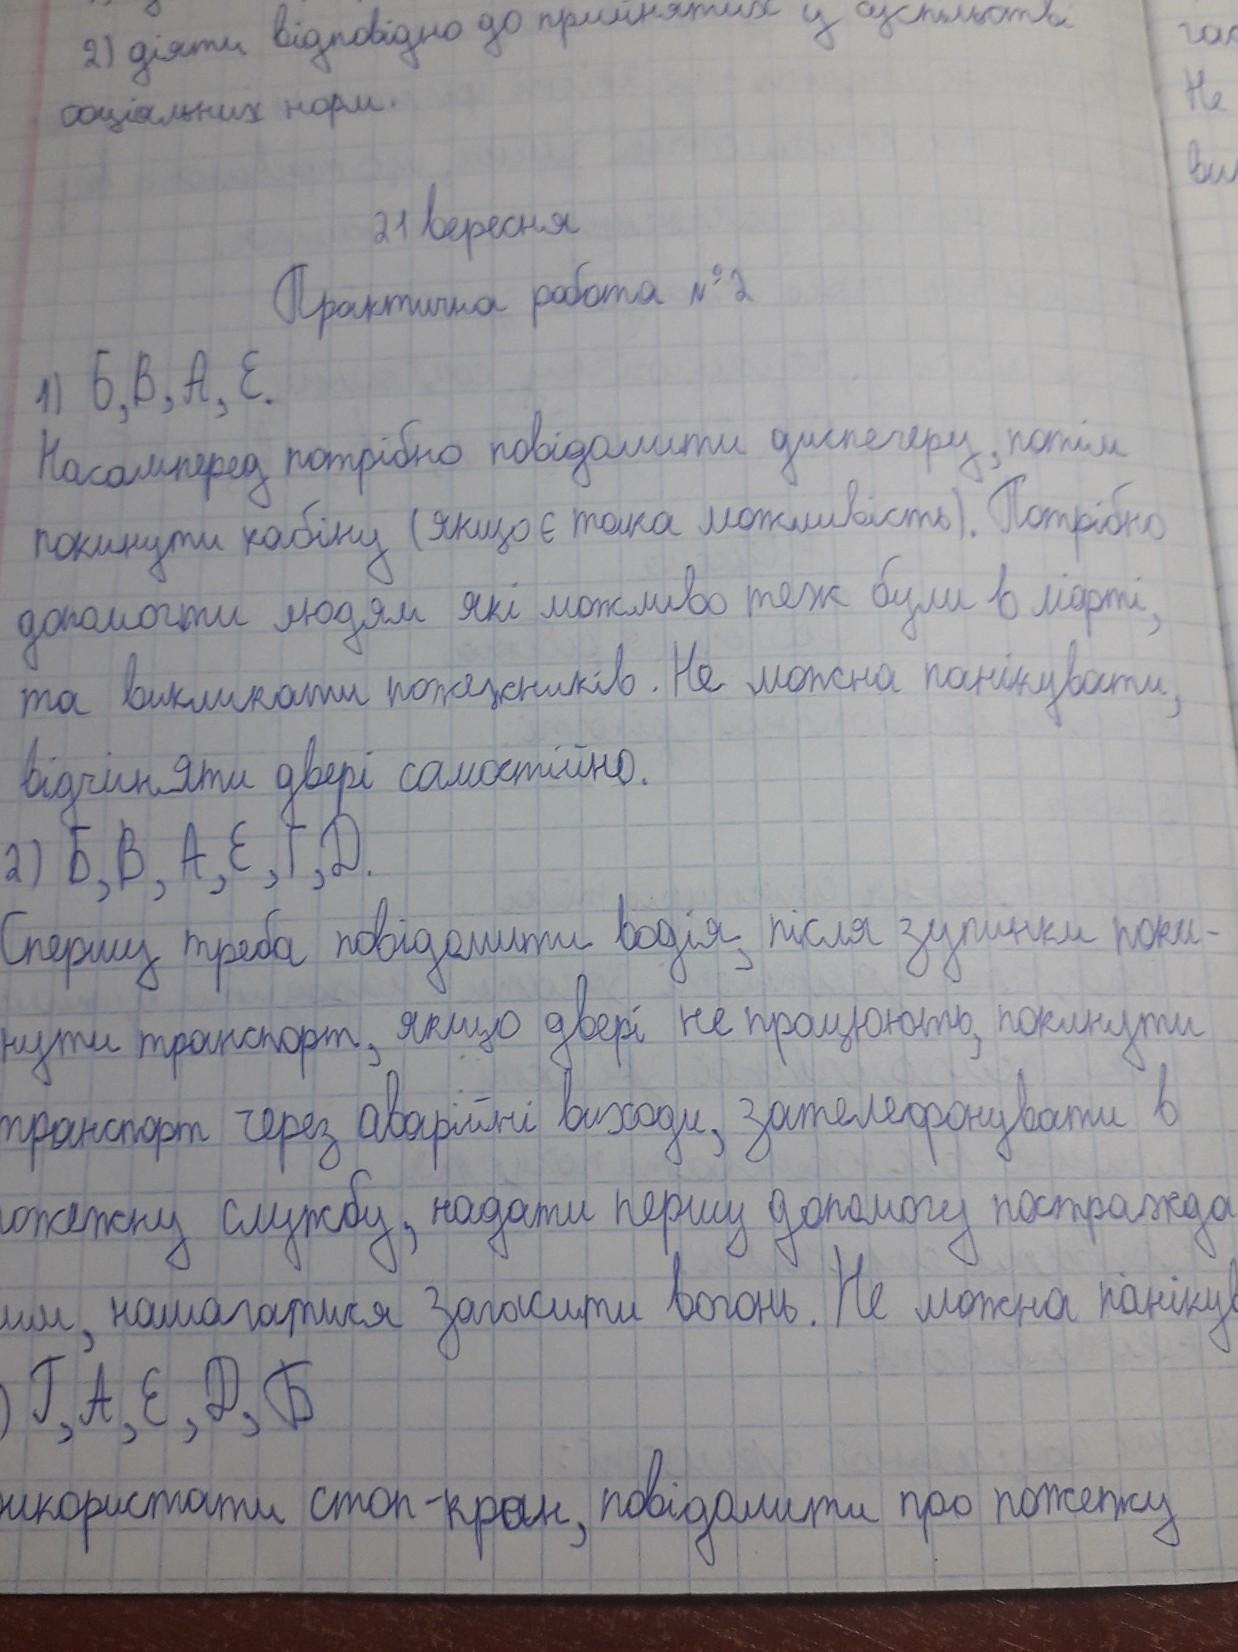 2) діяти відповідно до прийнятих у суспільстві
соціальних норм.
Не
21 вересня
Практична робота №2
1) Б, В, А, Є.
Насамперед потрібно повідомити диспечеру, потім
покинути кабіну (якщо є така можливість). Потрібно
допомогти людям які можливо теж були в ліфті,
та викликати пожежників. Не можна панікувати,
відчиняти двері самостійно.
2) Б, В, А, Є, Г, Д.
Спершу треба повідомити водія, після зупинки поки-
нути транспорт, якщо двері не працюють, покинути
транспорт через аварійні виходи, зателефонувати в
ожежну службу, надати першу допомогу постражда
им, намагатися загасити вогонь. Не можна панікув
) Г, А, Є, Д, Б
икористати стоп-кран, повідомити про пожежу